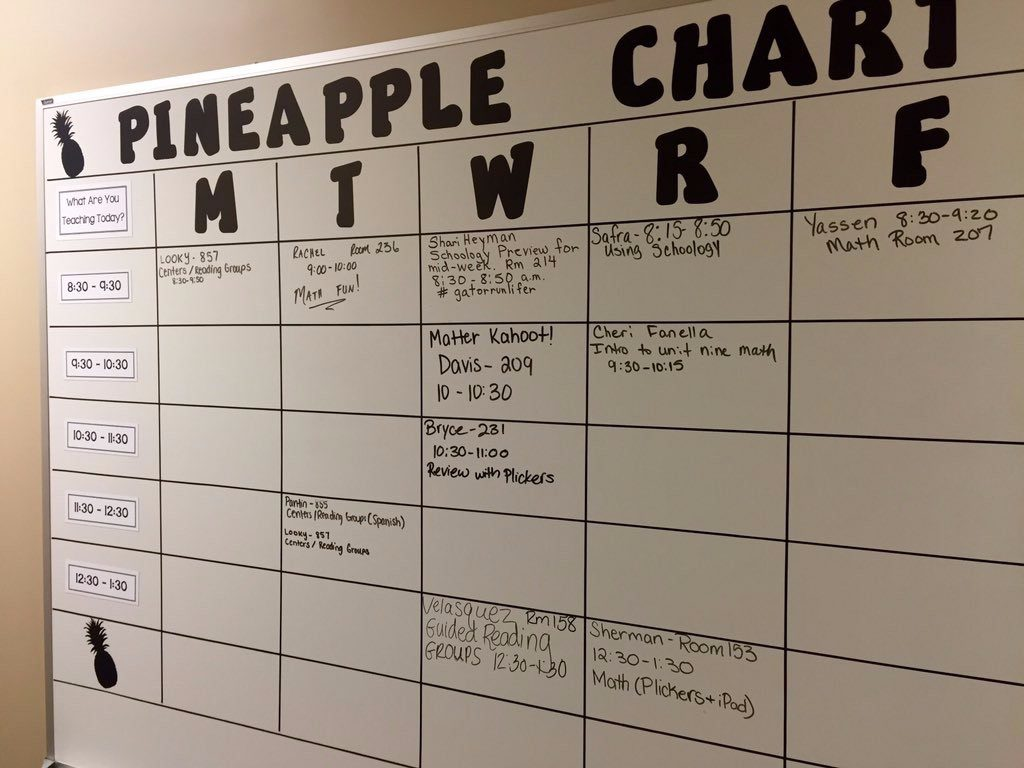 PINEAPPLE CHART
What Are You
Teaching Today?
M
T
W
R
F
8:30 - 9:30
LOOKY - 857
Centers / Reading Groups
8:30-9:50
RACHEL ROOM 236
9:00-10:00
MATH FUN!
Shari Heyman
Schoology Preview for
mid-week. Rm 214
8:30-8:50 a.m.
# gatorrunlifer
Safra - 8:15-8:50
Using Schoology
Yassen 8:30-9:20
Math Room 207
9:30 - 10:30
Matter Kahoot!
Davis - 209
10 - 10:30
Cheri Fanella
Intro to unit nine math
9:30-10:15
10:30 - 11:30
Bryce - 231
10:30-11:00
Review with Plickers
11:30 - 12:30
Pantin - 855
Centers/Reading Groups (Spanish)
Looky - 857
Centers / Reading Groups
12:30 - 1:30
Velasquez Rm 158
Guided Reading
GROUPS 12:30-1:30
Sherman - Room 153
12:30-1:30
Math (Plickers + iPad)